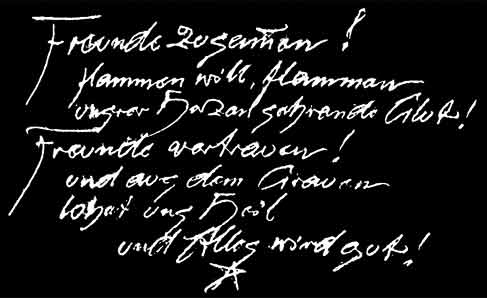 Freunde zusam̄en!
flammen will, flammen
unsrer Herzen sehrende Glut!
Freunde vertrauen!
und aus dem Grauen
lohet uns Heil
und Alles wird gut!